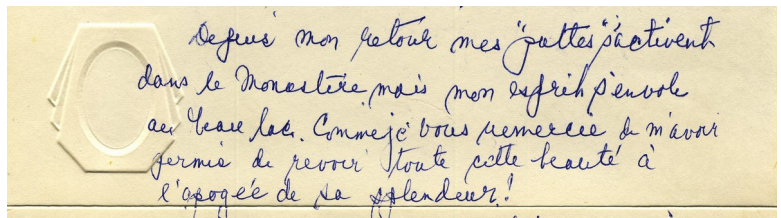 Depuis mon retour mes "pattes" s'activent
dans le Monastère mais mon esprit s'envole
au beau lac. Comme je vous remercie de m'avoir
permis de revoir toute cette beauté à
l'apogée de sa splendeur!